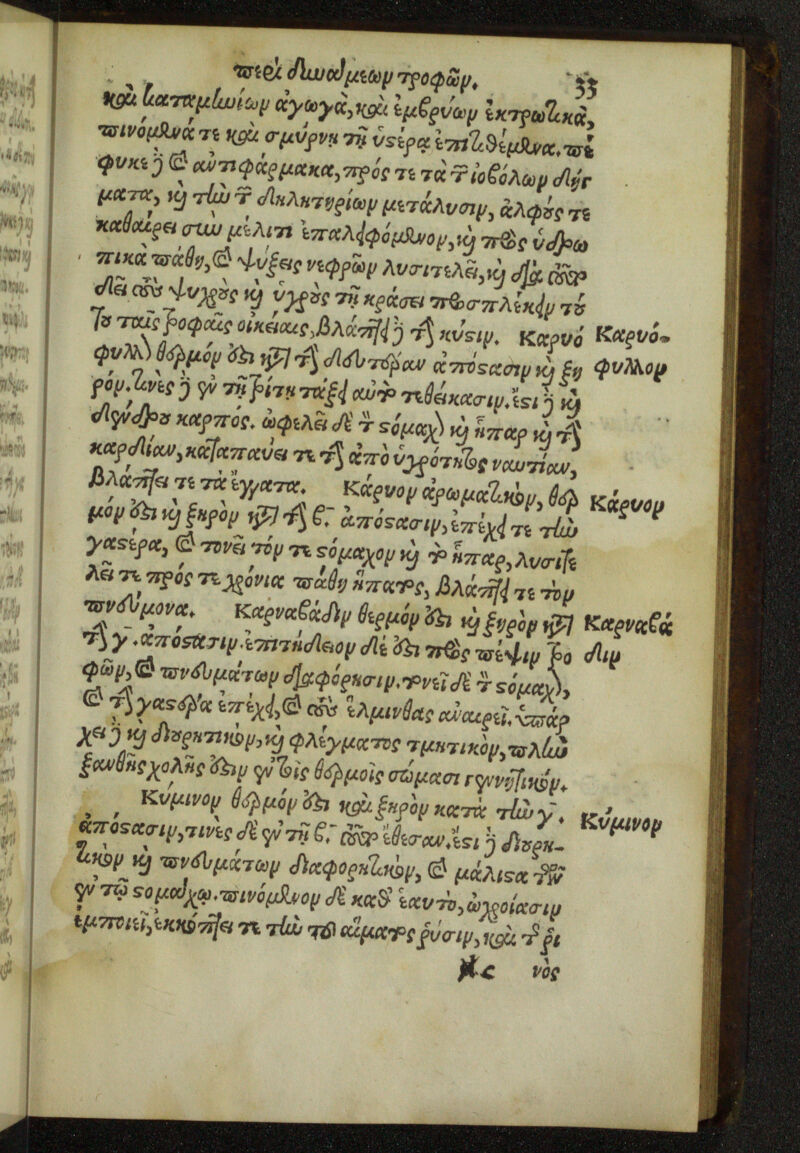 περὶ δυνάμεων τροφῶν. 33
καὶ καταμηνίων ἀγωγὰ, καὶ ἐμβρύων ἐκτρωτικὰ,
πινόμενά τε καὶ σμύρνῃ τῇ ὑστέρᾳ ἐπιτιθέμενα. πέ
φυκε δὲ καὶ ἀντιφάρμακα, πρός τε τὰ τῶν ἰοβόλων δήγ
ματα, καὶ τὴν τῶν δηλητηρίων μετάλυσιν, ἀλφούς τε
καθαίρει σὺν μέλιτι ἐπαλειφόμενον, καὶ πρὸς ὑδρω
πικὰ πάθη, καὶ ψύξεις νεφρῶν λυσιτελεῖ, καὶ διὰ τοῦτο
δεῖ τοὺς ψυχροὺς καὶ ὑγροὺς τῇ κράσει προσπλέκειν τὸ
το ταῖς τροφαῖς οἰκείαις, βλάπτει δὲ τὴν κύστιν. Καρυό Καρυό-
φυλλον θερμόν ἐστι κατὰ τὴν δευτέραν ἀπόστασιν καὶ ξη φυλλον
ρόν. τινὲς δὲ ἐν τῇ τρίτῃ τάξει αὐτὸ τεθείκασιν. ἔστι δὲ καὶ
δένδρου καρπός. ὠφελεῖ δὲ τὸν στόμαχον καὶ ἧπαρ καὶ τὴν
καρδίαν, καταπαύει τε τὴν ἀπὸ ὑγρότητος ναυτίαν,
βλάπτει τε τὰ ἔγγατα. Κάρυον ἀρωματικὸν, θερ Κάρυον
μόν ἐστι καὶ ξηρὸν κατὰ τὴν β. ἀπόστασιν, ἐπέχει τε τὴν
γαστέρα, καὶ τονεῖ τόν τε στόμαχον καὶ τὸ ἧπαρ, λυσιτε
λεῖ τε πρός τε χρόνια πάθη ἥπατος, βλάπτει τε τὸν
πνεύμονα. Καρναβάδιν θερμόν ἐστι καὶ ξηρὸν κατὰ Καρναβά
τὴν γ. ἀπόστασιν. ἐπιτήδειον δέ ἐστι πρὸς πέψιν τρο διν
φῶν, καὶ πνευμάτων διαφόρησιν. τονεῖ δὲ τὸν στόμαχον,
καὶ τὴν γαστέρα ἐπέχει, καὶ τοὺς ἕλμινθας ἀναιρεῖ. ὑπάρ
χει δὲ καὶ διουρητικὸν, καὶ φλέγματος τμητικὸν, πλὴν
ξανθῆς χολῆς ἐστιν ἐν τοῖς θερμοῖς σώμασι γεννητικόν.
Κύμινον θερμόν ἐστι καὶ ξηρὸν κατὰ τὴν γ. Κύμινον
ἀπόστασιν, τινὲς δὲ ἐν τῇ β. τοῦτο ἔθεσαν. ἔστι δὲ διουρη-
τικὸν καὶ πνευμάτων διαφορητικὸν, καὶ μάλιστα τῶν
ἐν τῷ στομάχῳ. πινόμενον δὲ καθ' ἑαυτὸ, ὠχρίασιν
ἐμποιεῖ, ἐκκόπτει τε τὴν τοῦ αἵματος ῥύσιν, καὶ τὸν ῥι
νὸς